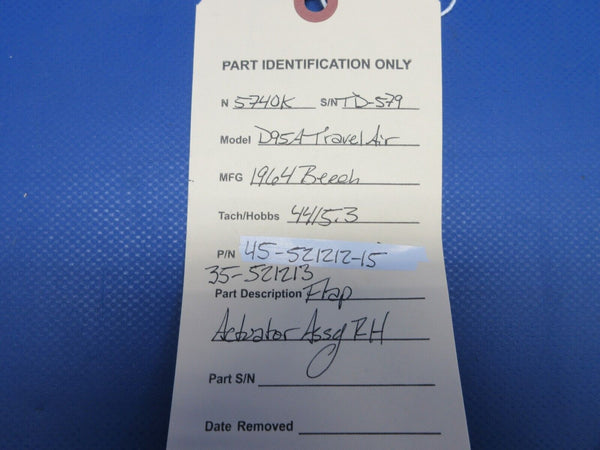 PART IDENTIFICATION ONLY
N 5740K S/N TD-579
Model D95A Travel Air
MFG 1964 Beech
Tach/Hobbs 4415.3
P/N 45-521212-15
35-521213
Part Description Flap
Actuator Assy RH
Part S/N
Date Removed